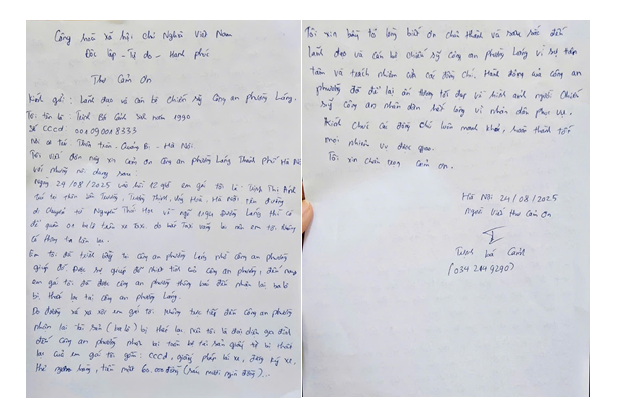 Cộng hòa xã hội chủ nghĩa Việt Nam
Độc lập - Tự do - Hạnh phúc
Thư Cảm Ơn
Kính gửi: Lãnh đạo và cán bộ chiến sỹ Công an phường Láng.
Tôi tên là: Trịnh Bá Cảnh Sinh năm 1990
Số CCCD 001090018333
Nơi cư trú: - Quảng Bị - Hà Nội
Tôi viết đơn này xin cảm ơn Công an phường Láng Thành phố Hà Nội
với những nội dung sau:
Ngày 24/08/2025 vào hồi 12 giờ em gái tôi là: Trịnh Thị Ánh
trú tại thôn trên đường
di chuyển từ Nguyễn Thái Học về ngõ phường Láng thì có
để quên 01 ba lô trên xe taxi. do bắt Taxi vãng lai nên em tôi không
có thông tin liên lạc.
Em tôi đã trình báng tin công an phường Láng nhờ công an phường
giúp đỡ. Được sự giúp đỡ nhiệt tình của công an phường, đến nay
em gái tôi đã được công an phường thông báo đến nhận lại ba lô
bị thất lạc tại công an phường Láng.
Do đường xá xa xôi em gái tôi không trực tiếp đến công an phường
nhận lại tài sản (ba lô) bị thất lạc nên tôi là đại diện gia đình
đến công an phường nhận lại toàn bộ tài sản giấy tờ bị thất
lạc của em gái tôi gồm: CCCD, giấy phép lái xe, đăng ký xe,
thẻ ngân hàng, tiền mặt 60.000 đồng (sáu mươi nghìn đồng)...
Tôi xin bày tỏ lòng biết ơn chân thành và sâu sắc đến
Lãnh đạo và cán bộ chiến sỹ công an phường Láng vì sự tận
tâm và trách nhiệm của các đồng chí. Hành động của công an
phường đã để lại ấn tượng tốt đẹp về hình ảnh người Chiến
sỹ công an nhân dân hết lòng vì nhân dân phục vụ.
Kính chúc các đồng chí luôn mạnh khỏe, hoàn thành tốt
mọi nhiệm vụ được giao.
Tôi xin chân trọng cảm ơn.
Hà Nội 24/08/2025
Người viết thư cảm ơn
Trịnh bá Cảnh
(034 2149290)